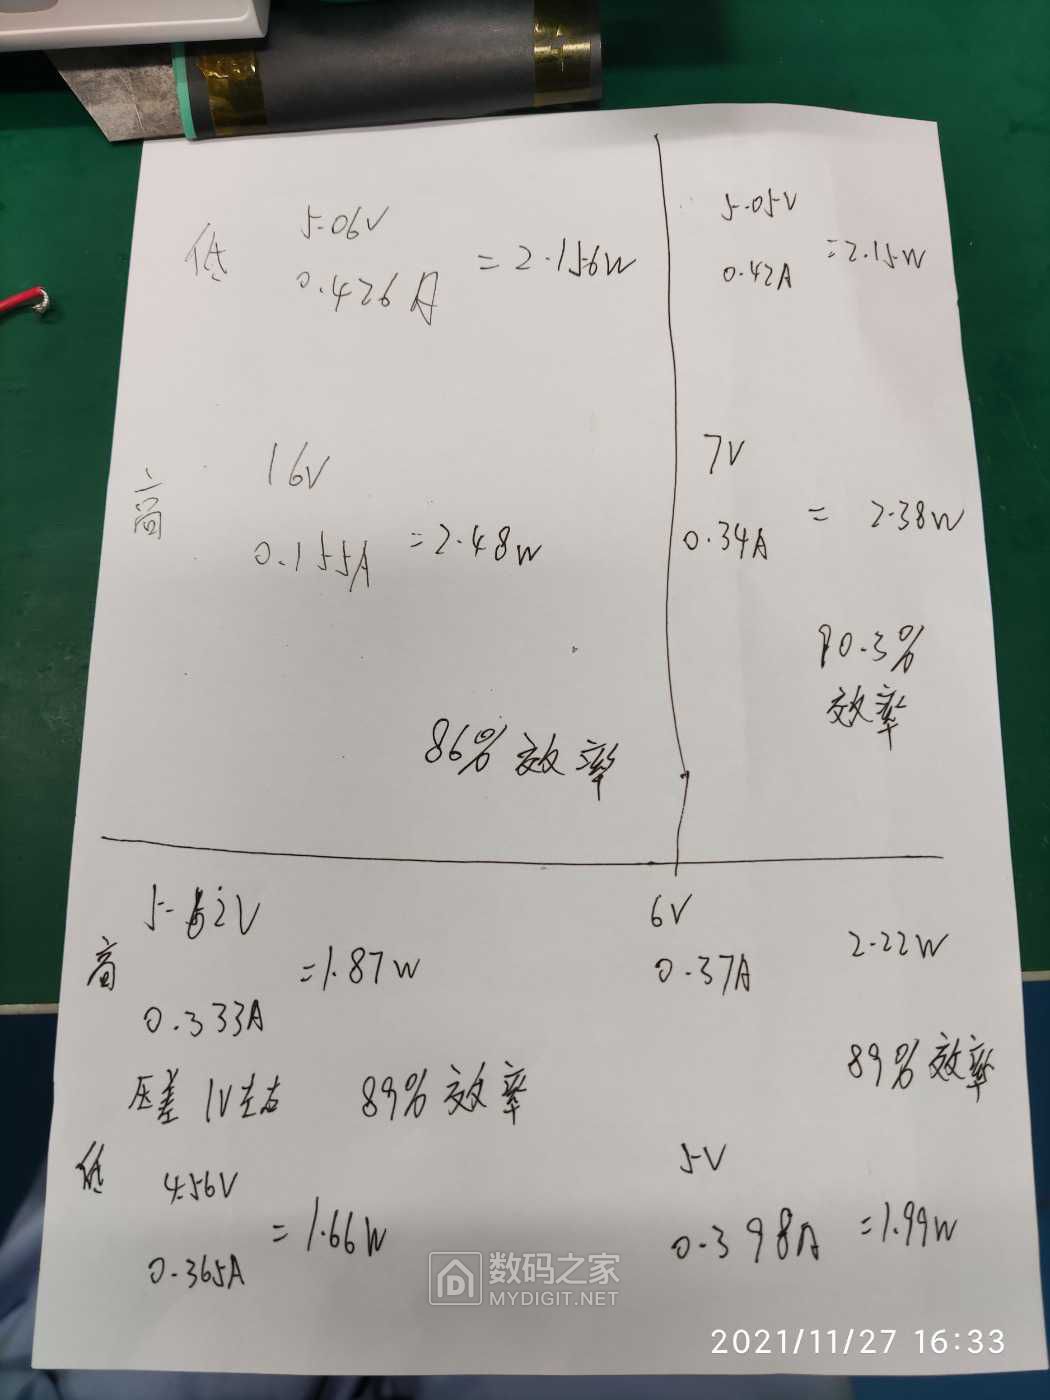 低
5.06V
0.426A
=2.156W
5.05V
0.42A
=2.15W
高
16V
0.155A
=2.48W
7V
0.34A
= 2.38W
86%效率
90.3%
效率
高
0.333A
=1.87W
压差 1V左右
89%效率
6V
0.37A
2.22W
89%效率
低
4.56V
0.365A
=1.66W
5V
0.398A
=1.99W
数码之家
MYDIGIT.NET
2021/11/27 16:33